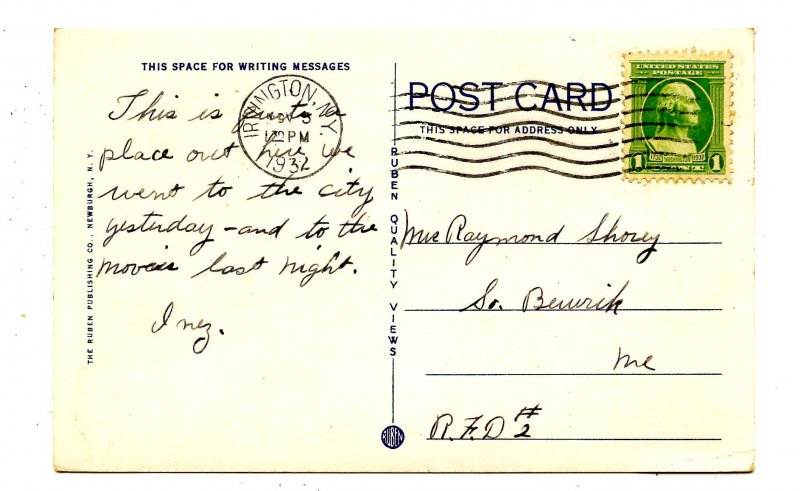 THIS SPACE FOR WRITING MESSAGES
This is quite a
place out here we
went to the city
yesterday - and to the
movies last night.
Inez.
THE RUBEN PUBLISHING CO., NEWBURGH, N. Y.
RUBEN QUALITY VIEWS
RUBEN
IRVINGTON, N.Y.
NOV 5
PM
1932
POST CARD
THIS SPACE FOR ADDRESS ONLY
UNITED STATES
POSTAGE
1732 WASHINGTON 1932
1 CENT 1
Mrs Raymond Shorey
So. Berwick
Me
R.F.D #2